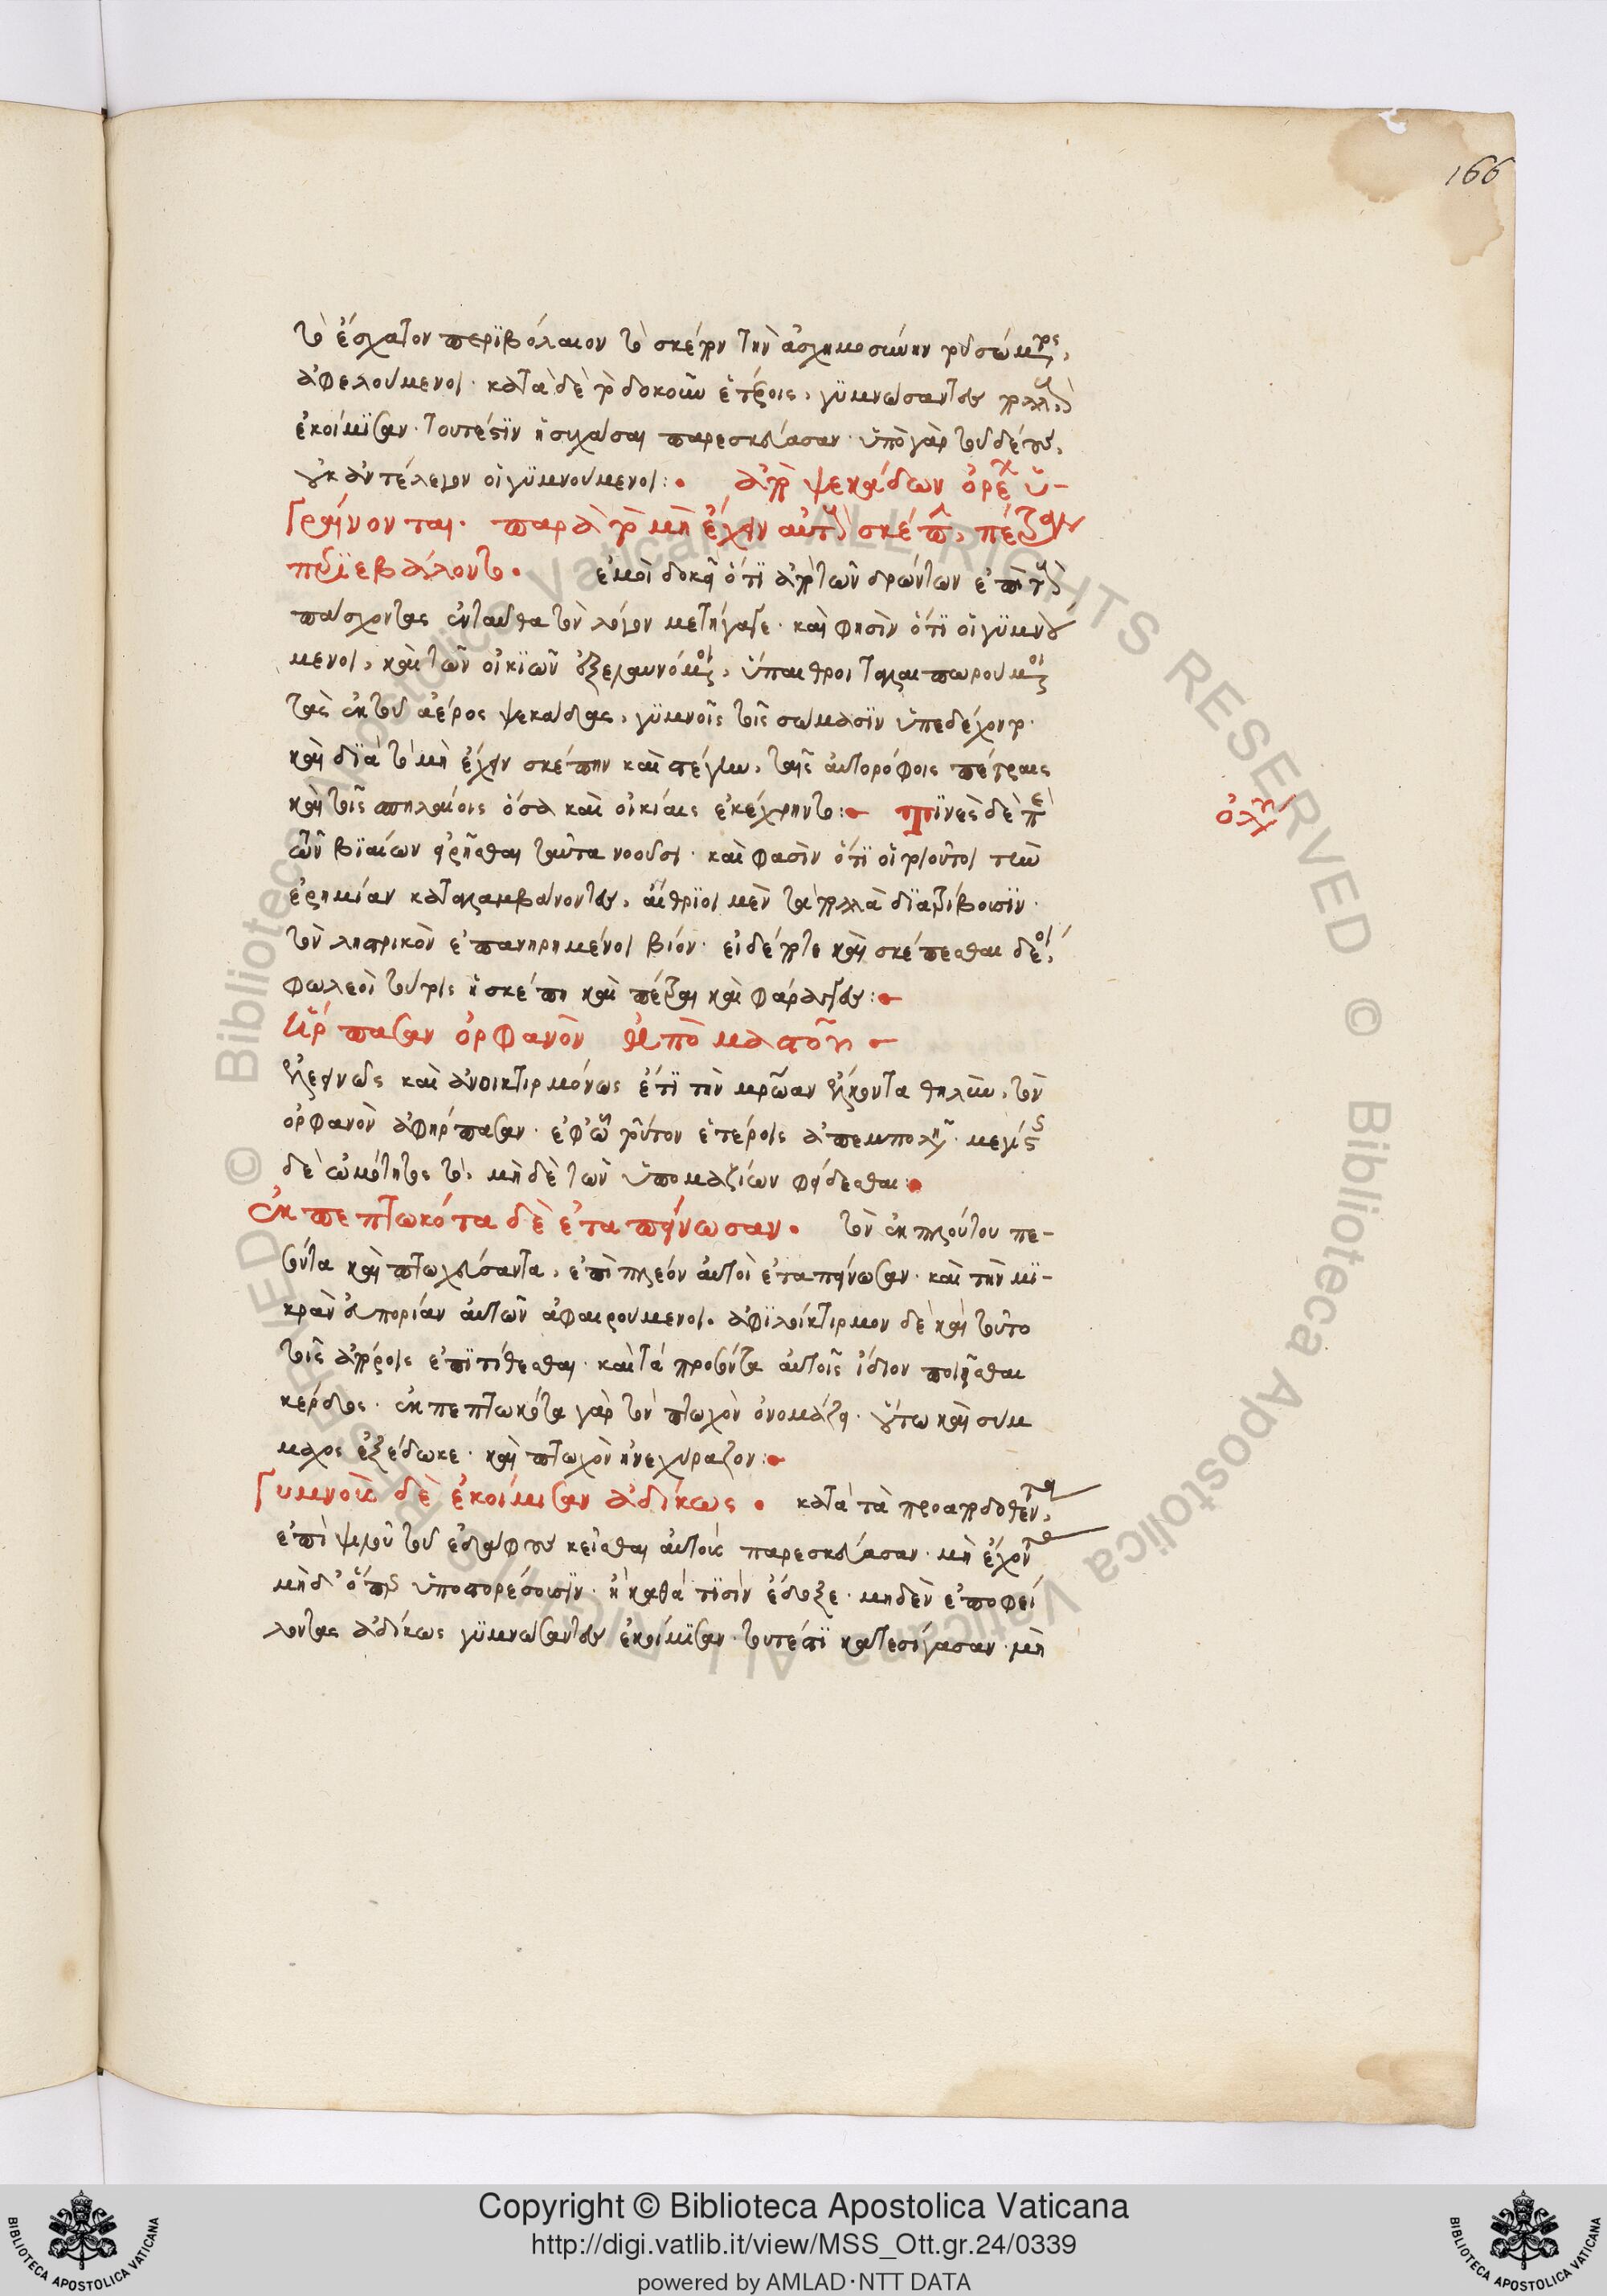 166
τὸ ἔσχατον περιβόλαιον τὸ σκέπον τὴν ἀσχημοσύνην τοῦ σώματος,
ἀφελούμενοι· κατὰ δὲ τὸ δοκοῦν ἑτέροις, γυμνώσαντες πολλοὺς
ἐκοίμισαν· τουτέστιν ἡσυχάσαι παρεσκεύασαν· ὑπὸ γὰρ τοῦ δέους,
οὐκ ἀντέλεγον οἱ γυμνούμενοι: ἀπὸ ψεκάδων ὀρέων ὑ-
γραίνονται· παρὰ τὸ μὴ ἔχειν αὐτοὺς σκέπην, πέτραν
περιεβάλοντο· ἐμοὶ δοκεῖ ὅτι ἀπὸ τῶν δρώντων ἐπὶ τοὺς
πάσχοντας ἐνταῦθα τὸν λόγον μετήγαγε· καὶ φησὶν ὅτι οἱ γυμνού
μενοι, καὶ τῶν οἰκιῶν ἐξελαυνόμενοι, ὕπαιθροι ταλαιπωρούμενοι
τὰς ἐκ τοῦ ἀέρος ψεκάδας, γυμνοῖς τοῖς σώμασιν ὑπεδέχοντο·
καὶ διὰ τὸ μὴ ἔχειν σκέπην καὶ στέγην, ταῖς αὐτορόφοις πέτραις
καὶ τοῖς σπηλαίοις ὅσα καὶ οἰκίαις ἐκέχρηντο: τινὲς δὲ περὶ
τῶν βιαίων εἰρῆσθαι ταῦτα νοοῦσι· καὶ φασὶν ὅτι οἱ τοιοῦτοι τὴν
ἐρημίαν καταλαμβάνοντες, αἴθριοι μὲν τὰ πολλὰ διατρίβουσιν·
τὸν λῃστρικὸν ἐπανῃρημένοι βίον· εἰ δέ ποτε καὶ σκέπεσθαι δέοι,
φωλεοὶ τούτοις ἡ σκέπη καὶ πέτραι καὶ φάραγγες:
ἥρπασαν ὀρφανὸν ἀπὸ μαστοῦ
ἀπεινῶς καὶ ἀνοικτιρμόνως ἔτι τὴν μητρῴαν ἕλκοντα θηλὴν, τὸν
ὀρφανὸν ἀφήρπασαν· ἐφ' ᾧ τοῦτον ἑτέροις ἀπεμπολεῖν· μεγίστης
δὲ ὠμότητος τὸ μὴ δὲ τῶν ὑπομαζίων φείδεσθαι:
ἐκπεπτωκότα δὲ ἐταπείνωσαν· τὸν ἐκ πλούτου πε-
σόντα καὶ πτωχεύσαντα, ἐπὶ πλέον αὐτοὶ ἐταπείνωσαν· καὶ τὴν μι-
κρὰν εὐπορίαν αὐτῶν ἀφαιρούμενοι· ἀφιλοίκτιρμον δὲ καὶ τοῦτο
τοῖς ἀπόροις ἐπιτίθεσθαι· καὶ τὰ προσόντα αὐτοῖς ἴδιον ποιεῖσθαι
κέρδος· ἐκπεπτωκότα γὰρ τὸν πτωχὸν ὀνομάζει· οὕτω καὶ σύμ
μαχος ἐξέδωκε· καὶ πτωχὸν ἠνεχύραζον:
γυμνοὺς δὲ ἐκοίμισαν ἀδίκως· κατὰ τὰ προαποδοθέντα,
ἐπὶ ψιλοῦ τοῦ ἐδάφους κεῖσθαι αὐτοὺς παρεσκεύασαν· μὴ ἔχοντας
μὴδ' ὅπερ ὑποστορέσουσιν· ἢ καθά τισιν ἔδοξε· μηδὲν ἐποφεί
λοντας ἀδίκως γυμνώσαντες ἐκοίμισαν· τουτέστι κατεσίγασαν μὴ
Copyright © Biblioteca Apostolica Vaticana
http://digi.vatlib.it/view/MSS_Ott.gr.24/0339
powered by AMLAD·NTT DATA